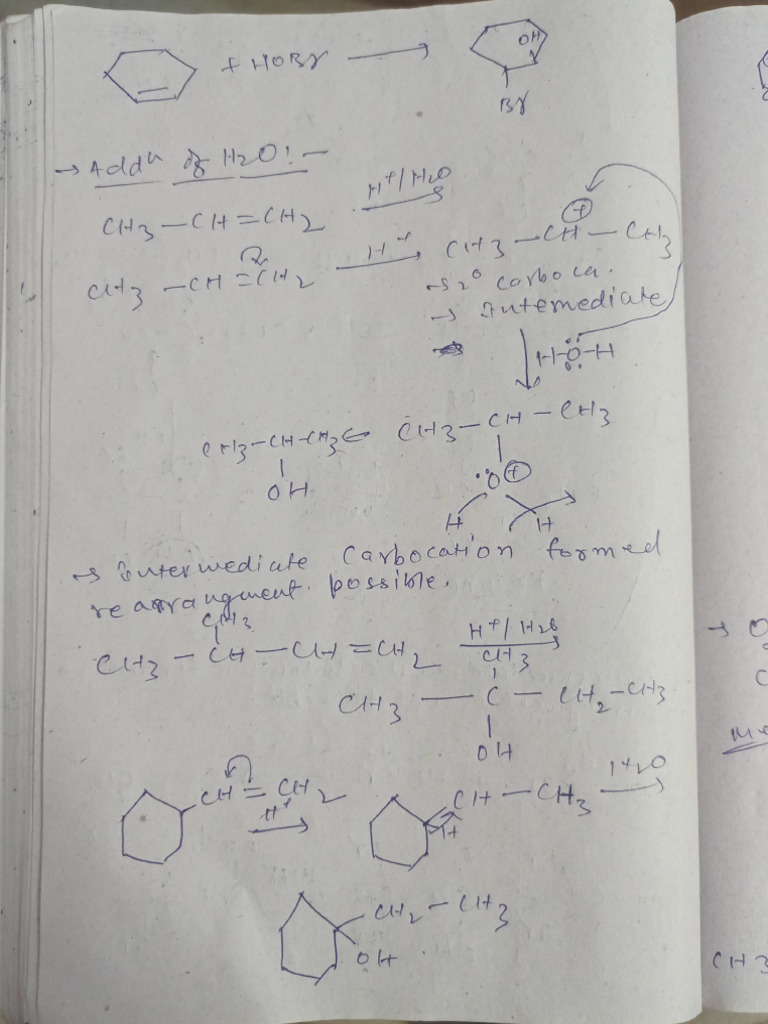 + HOBr ⟶ OH
Br
→ Addn of H2O! —
CH3 — CH = CH2 H+/H2O ⟶
CH3 — CH = CH2 H+ ⟶ CH3 — CH — CH3
⊕
→ 2° carboca.
→ Intermediate
H-Ö-H
CH3-CH-CH3 ← CH3 — CH — CH3
OH :O⊕
H H
→ Intermediate Carbocation formed
rearrangment possible.
CH3
CH3 — CH — CH = CH2 H+/H2O ⟶
CH3
CH3 — C — CH2-CH3
OH
CH = CH2 H+ ⟶ CH — CH3 H2O ⟶
H
CH2 — CH3
OH
→ O
C
CH3